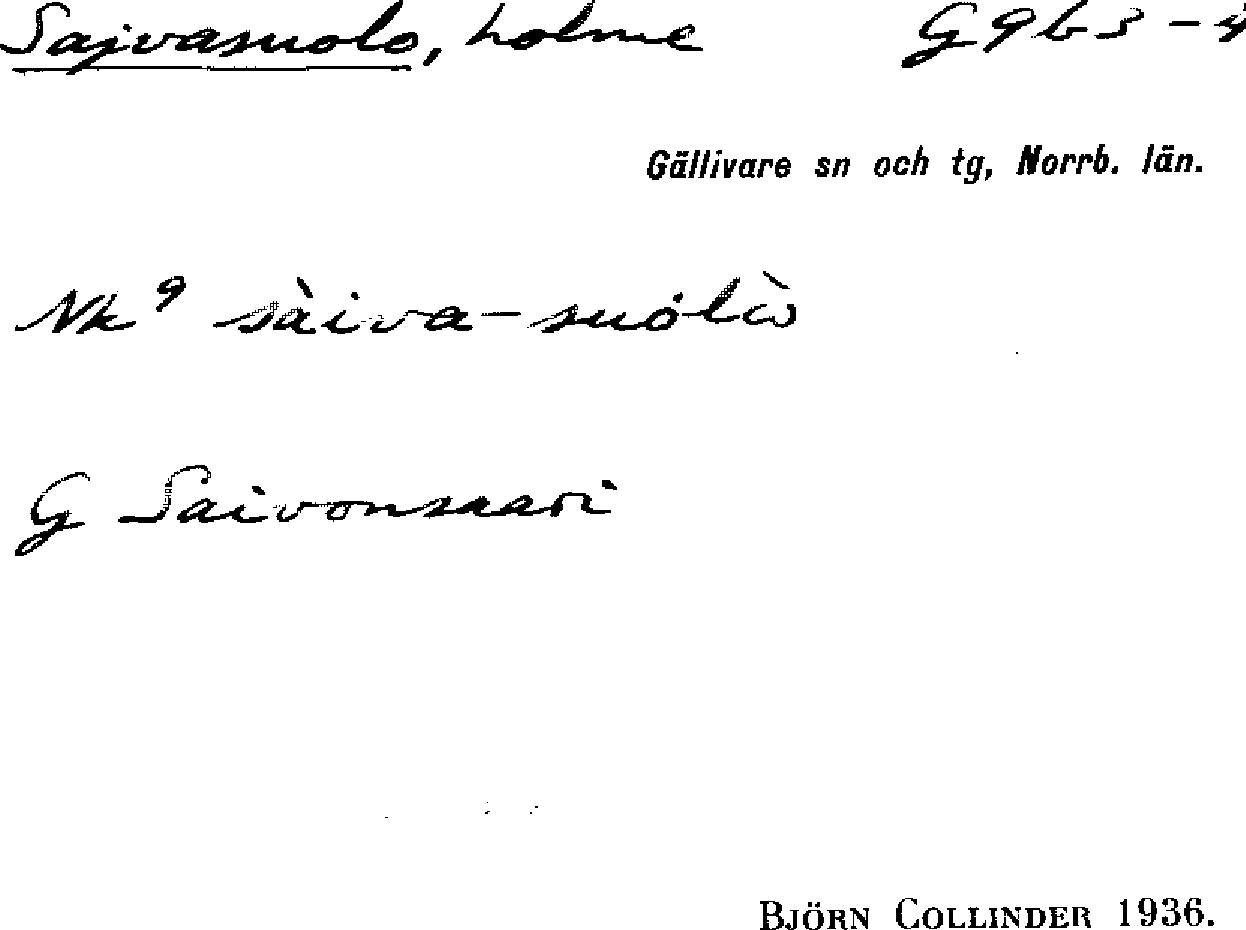 Sajvasuolo, holme G9b3-4
Gällivare sn och tg, Norrb. län.
Nk⁹ sàiva-suȯlὼ
G Saivonsaari
BJÖRN COLLINDER 1936.